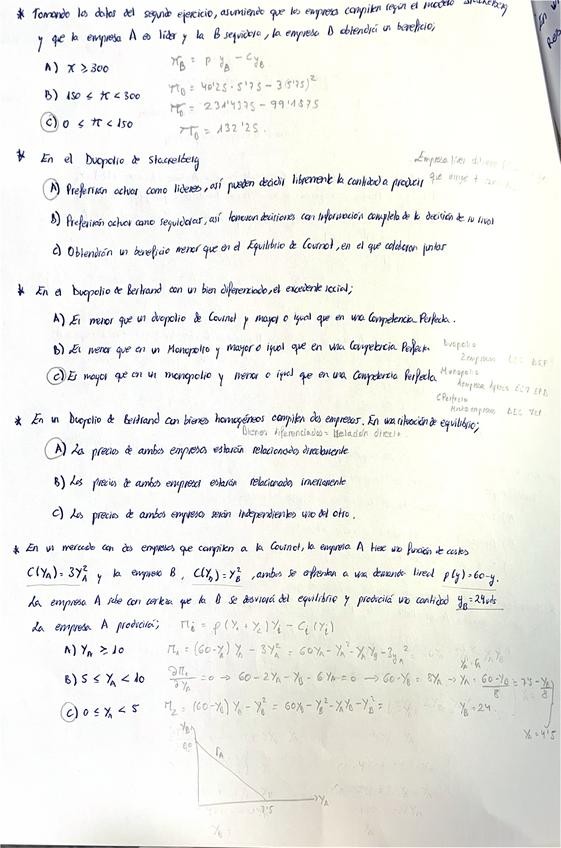 * Tomando los datos del segundo ejercicio, asumiendo que las empresas compiten según el modelo Stackelberg
y que la empresa A es líder y la B seguidora, la empresa B obtendrá un beneficio;
A) π ≥ 300
π_B = p y_B - C y_B
B) 150 ≤ π < 300
π_B = 40'25 · 5'75 - 3(5'75)²
π_B = 231'4375 - 99'1875
C) 0 ≤ π < 150
π_B = 132'25.
* En el Duopolio de Stackelberg
Empresa líder
A) Preferirán actuar como líderes, así pueden decidir libremente la cantidad a producir
que
B) Preferirán actuar como seguidoras, así tomaran decisiones con información completa de la decisión de su rival
C) Obtendrán un beneficio menor que en el Equilibrio de Cournot, en el que colaboran juntas
* En el Duopolio de Bertrand con un bien diferenciado, el excedente social;
A) Es menor que un duopolio de Cournot y mayor o igual que en una Competencia Perfecta.
B) Es menor que en un Monopolio y mayor o igual que en una Competencia Perfecta
Duopolio
2 empresas
Monopolio
C) Es mayor que en un monopolio y menor o igual que en una Competencia Perfecta
CPerfecta
* En un Duopolio de Bertrand con bienes homogéneos compiten dos empresas. En una situación de equilibrio;
Bienes diferenciados = Relación directa.
A) Los precios de ambas empresas estarán relacionados directamente
B) Los precios de ambas empresas estarán relacionados inversamente
C) Los precios de ambas empresas serán independientes uno del otro.
* En un mercado con dos empresas que compiten a la Cournot, la empresa A tiene una función de costes
C(Y_A) = 3Y_A² y la empresa B, C(Y_B) = Y_B², ambas se enfrentan a una demanda lineal p(y) = 60 - y.
La empresa A sabe con certeza que la B se desviará del equilibrio y producirá una cantidad y_B = 24 uds
La empresa A producirá; Π_i = p(Y_1 + Y_2)Y_i - C_i(Y_i)
A) Y_A ≥ 10
B) 5 ≤ Y_A < 10
= 0 → 60 - 2Y_A - Y_B - 6Y_A = 0 → 60 - Y_B = 8Y_A → Y_A = 60 - Y_B / 8
C) 0 ≤ Y_A < 5
Y_B = 24
Y_A = 4'5
Y_B
60
r_A
7'5
Y_A